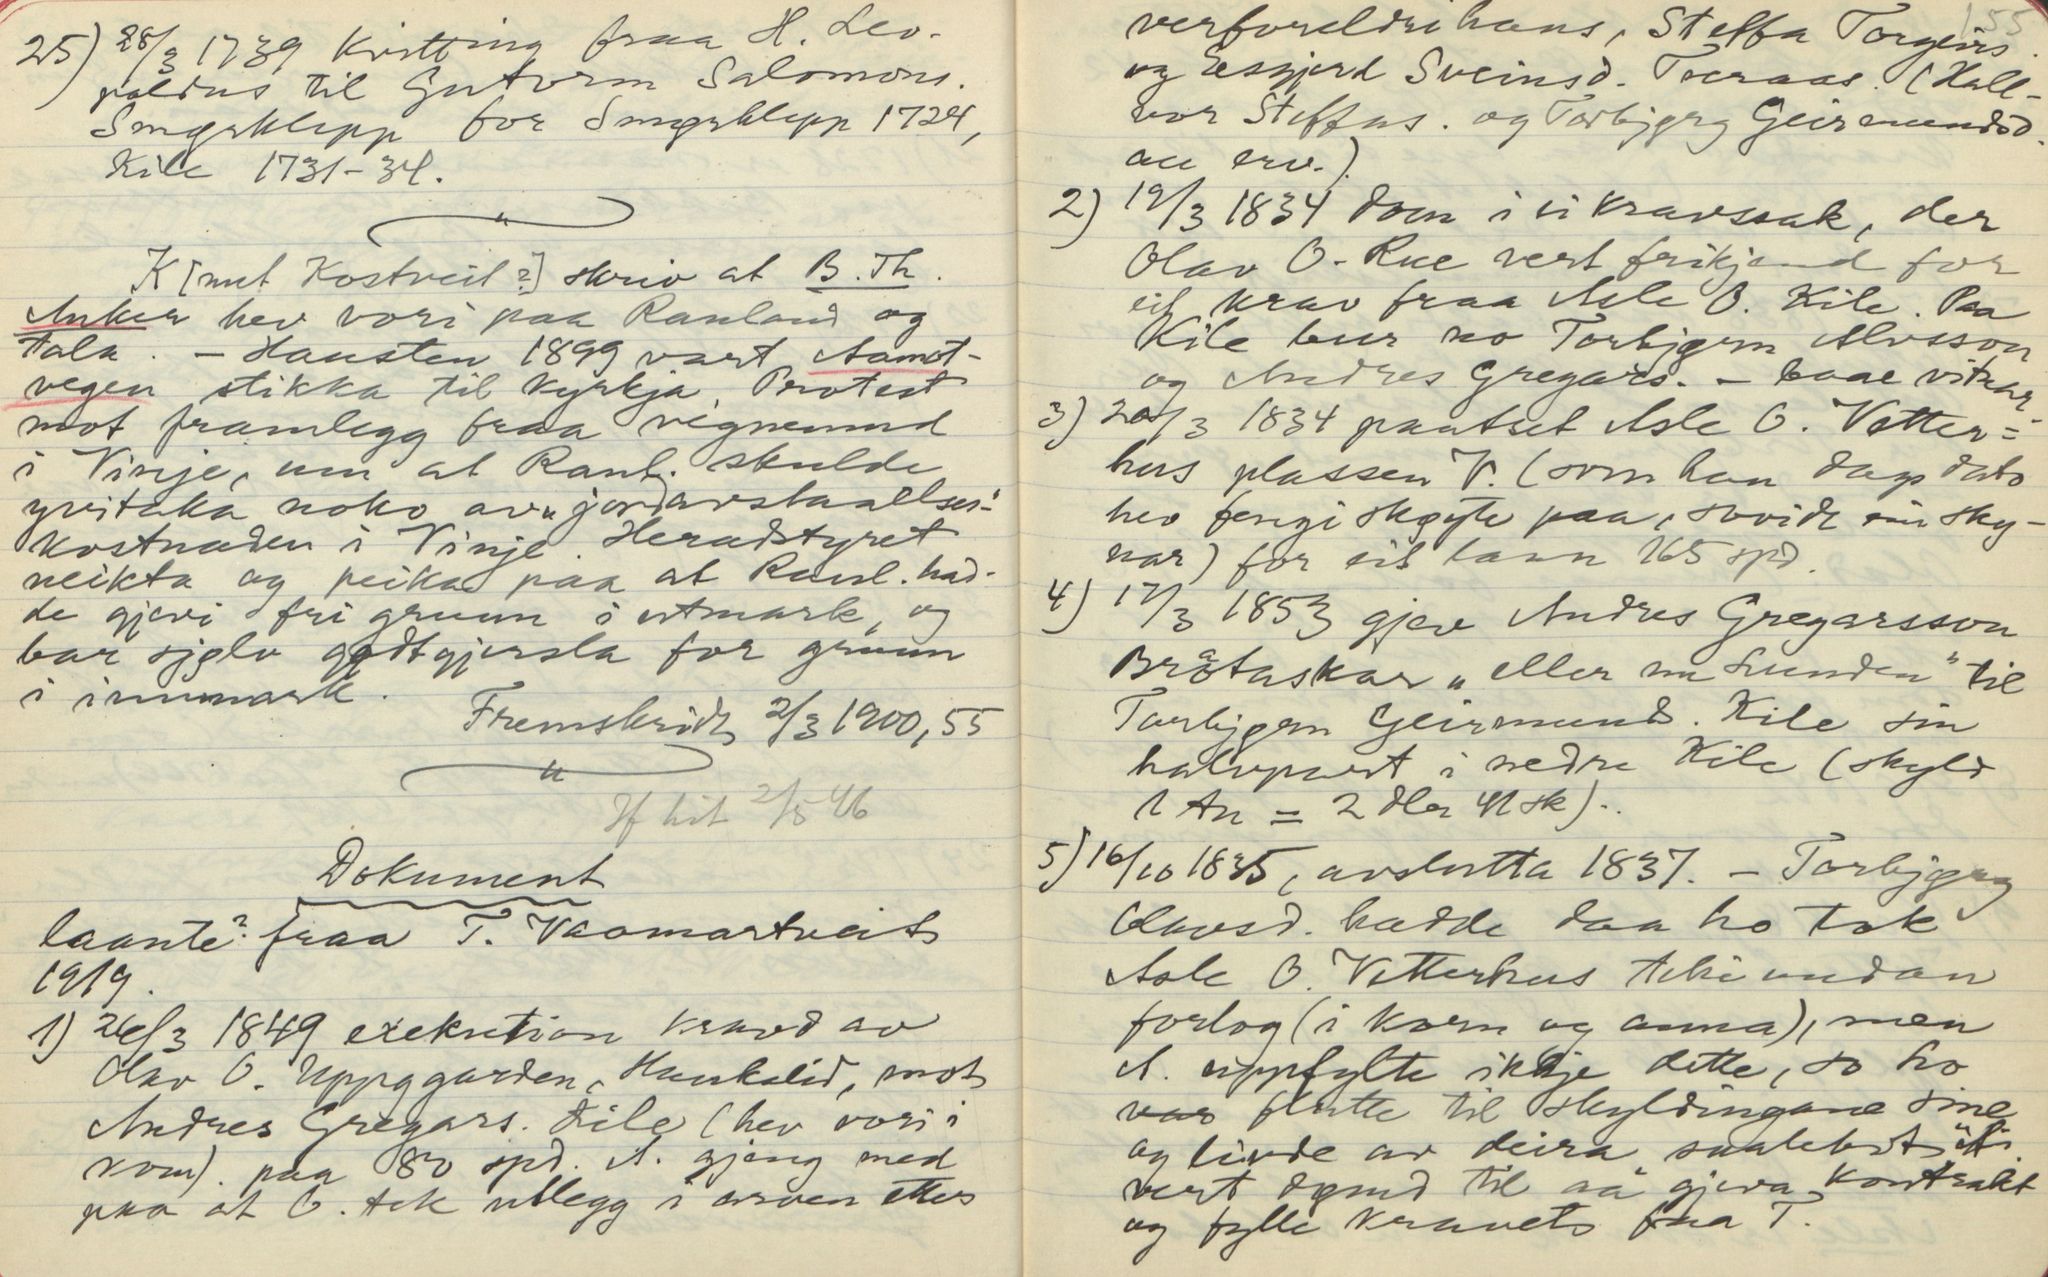 25) 28/3 1739 kvitting fraa H. Leo-
poldus til Gutorm Salomons.
Smørklepp for Smørklepp 1724,
Kile 1731-34.
K[nut Kostveit?] skriv at B. Th.
Anker hev vori paa Rauland og
tala. - Hausten 1899 vart Aamot-
vegen stikka til kyrkja. Protest
mot framlegg fraa vegnemnd
i Vinje, um at Raul. skulde
yvitaka noko av "jordavstaaelses"-
kostnaden i Vinje. Heradstyret
neikta og peika paa at Raul. had-
de gjevi fri grunn i utmark, og
bar sjølv godtgjersla for grunn
i innmark.
Fremskridt 2/3 1900, 55
Hf hit 2/5 46
Dokument
laante? fraa T. Vaamartveit
1919.
1) 26/3 1849 exekution kravd av
Olav O. Uppggarden, Haukelid, mot
Andres Gregars. Kile (hev vori i
kom). paa 80 spd. A. gjeng med
paa at O. tek utlegg i arven etter
155
verforeldri hans, Steffa Torgeirs.
og Æsgjerd Sveinsd. Tveraas. (Hall-
vor Steffas. og Torbjørg Geirmundsd.
au erv.).
2) 19/3 1834 dom i vikravssak, der
Olav O. Rue vert frikjend for
eit krav fraa Asle O. Kile. Paa
Kile bur no Torbjørn Alvsson
og Andres Gregars. - baae vitnar.
3) 20/3 1834 pantset Asle O. Vetter=
hus plassen V. (som han dags dato
hev fengi skøyte paa, sovidt ein sky-
nar) for eit laan 165 spd.
4) 17/3 1853 gjev Andres Gregarsson
Bråtaskar "eller nu Lunden" til
Torbjørn Geirmunds. Kile sin
halvpart i nedre Kile (skyld
1 An = 2 dlr 41 sk).
5) 16/10 1835, avslutta 1837. - Torbjørg
Olavsd. hadde daa ho tok
Asle O. Vetterhus teki undan
forlog (i korn og anna), men
A. uppfylte ikkje dette, so ho
var flutte til skyldingane sine
og livde av deira
vert dømd til aa gjeva kontrakt
og fylle kravet fraa T.